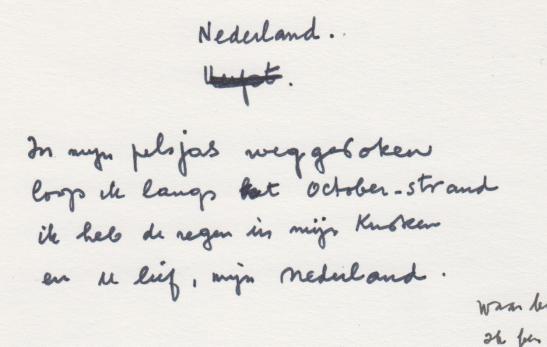 Nederland.
In mijn pelsjas weggedoken
loop ik langs het October-strand
ik heb de regen in mijn knoken
en u lief, mijn Nederland.
waar
ik ben